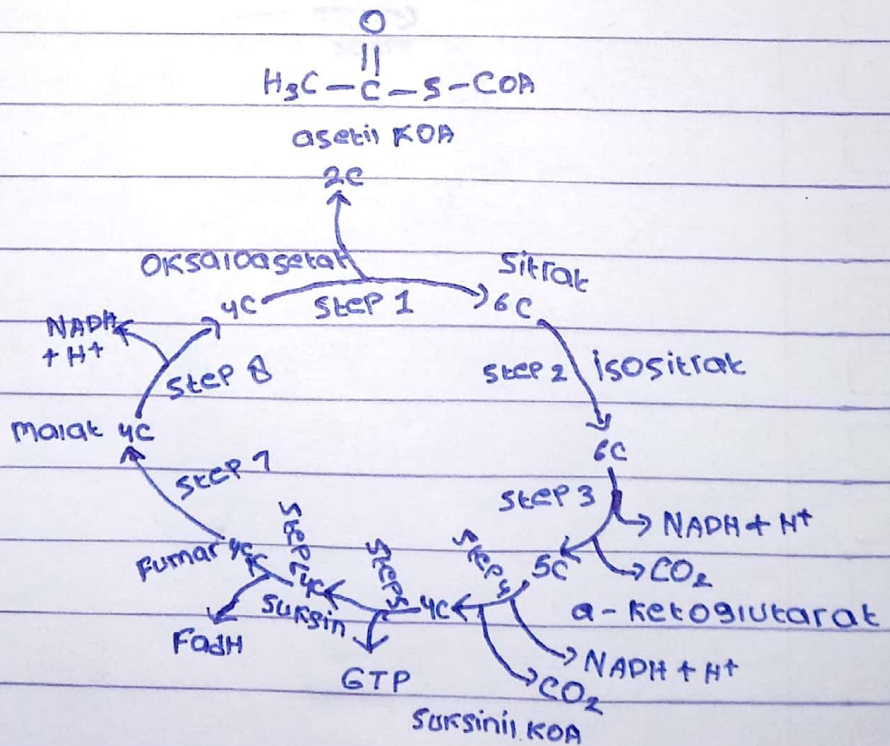 O
H₃C – C – S – COA
asetil KOA
2C
Oksaloasetat
Sitrat
4C
Step 1
6C
NADH
+ H⁺
Step 8
Step 2
isositrat
Malat 4C
6C
Step 7
Step 3
NADH + H⁺
Fumar 4C
Step 6
4C
Step 5
Step 4
5C
CO₂
Suksin
4C
α - Ketoglutarat
FadH
GTP
NADH + H⁺
CO₂
Suksinil KOA